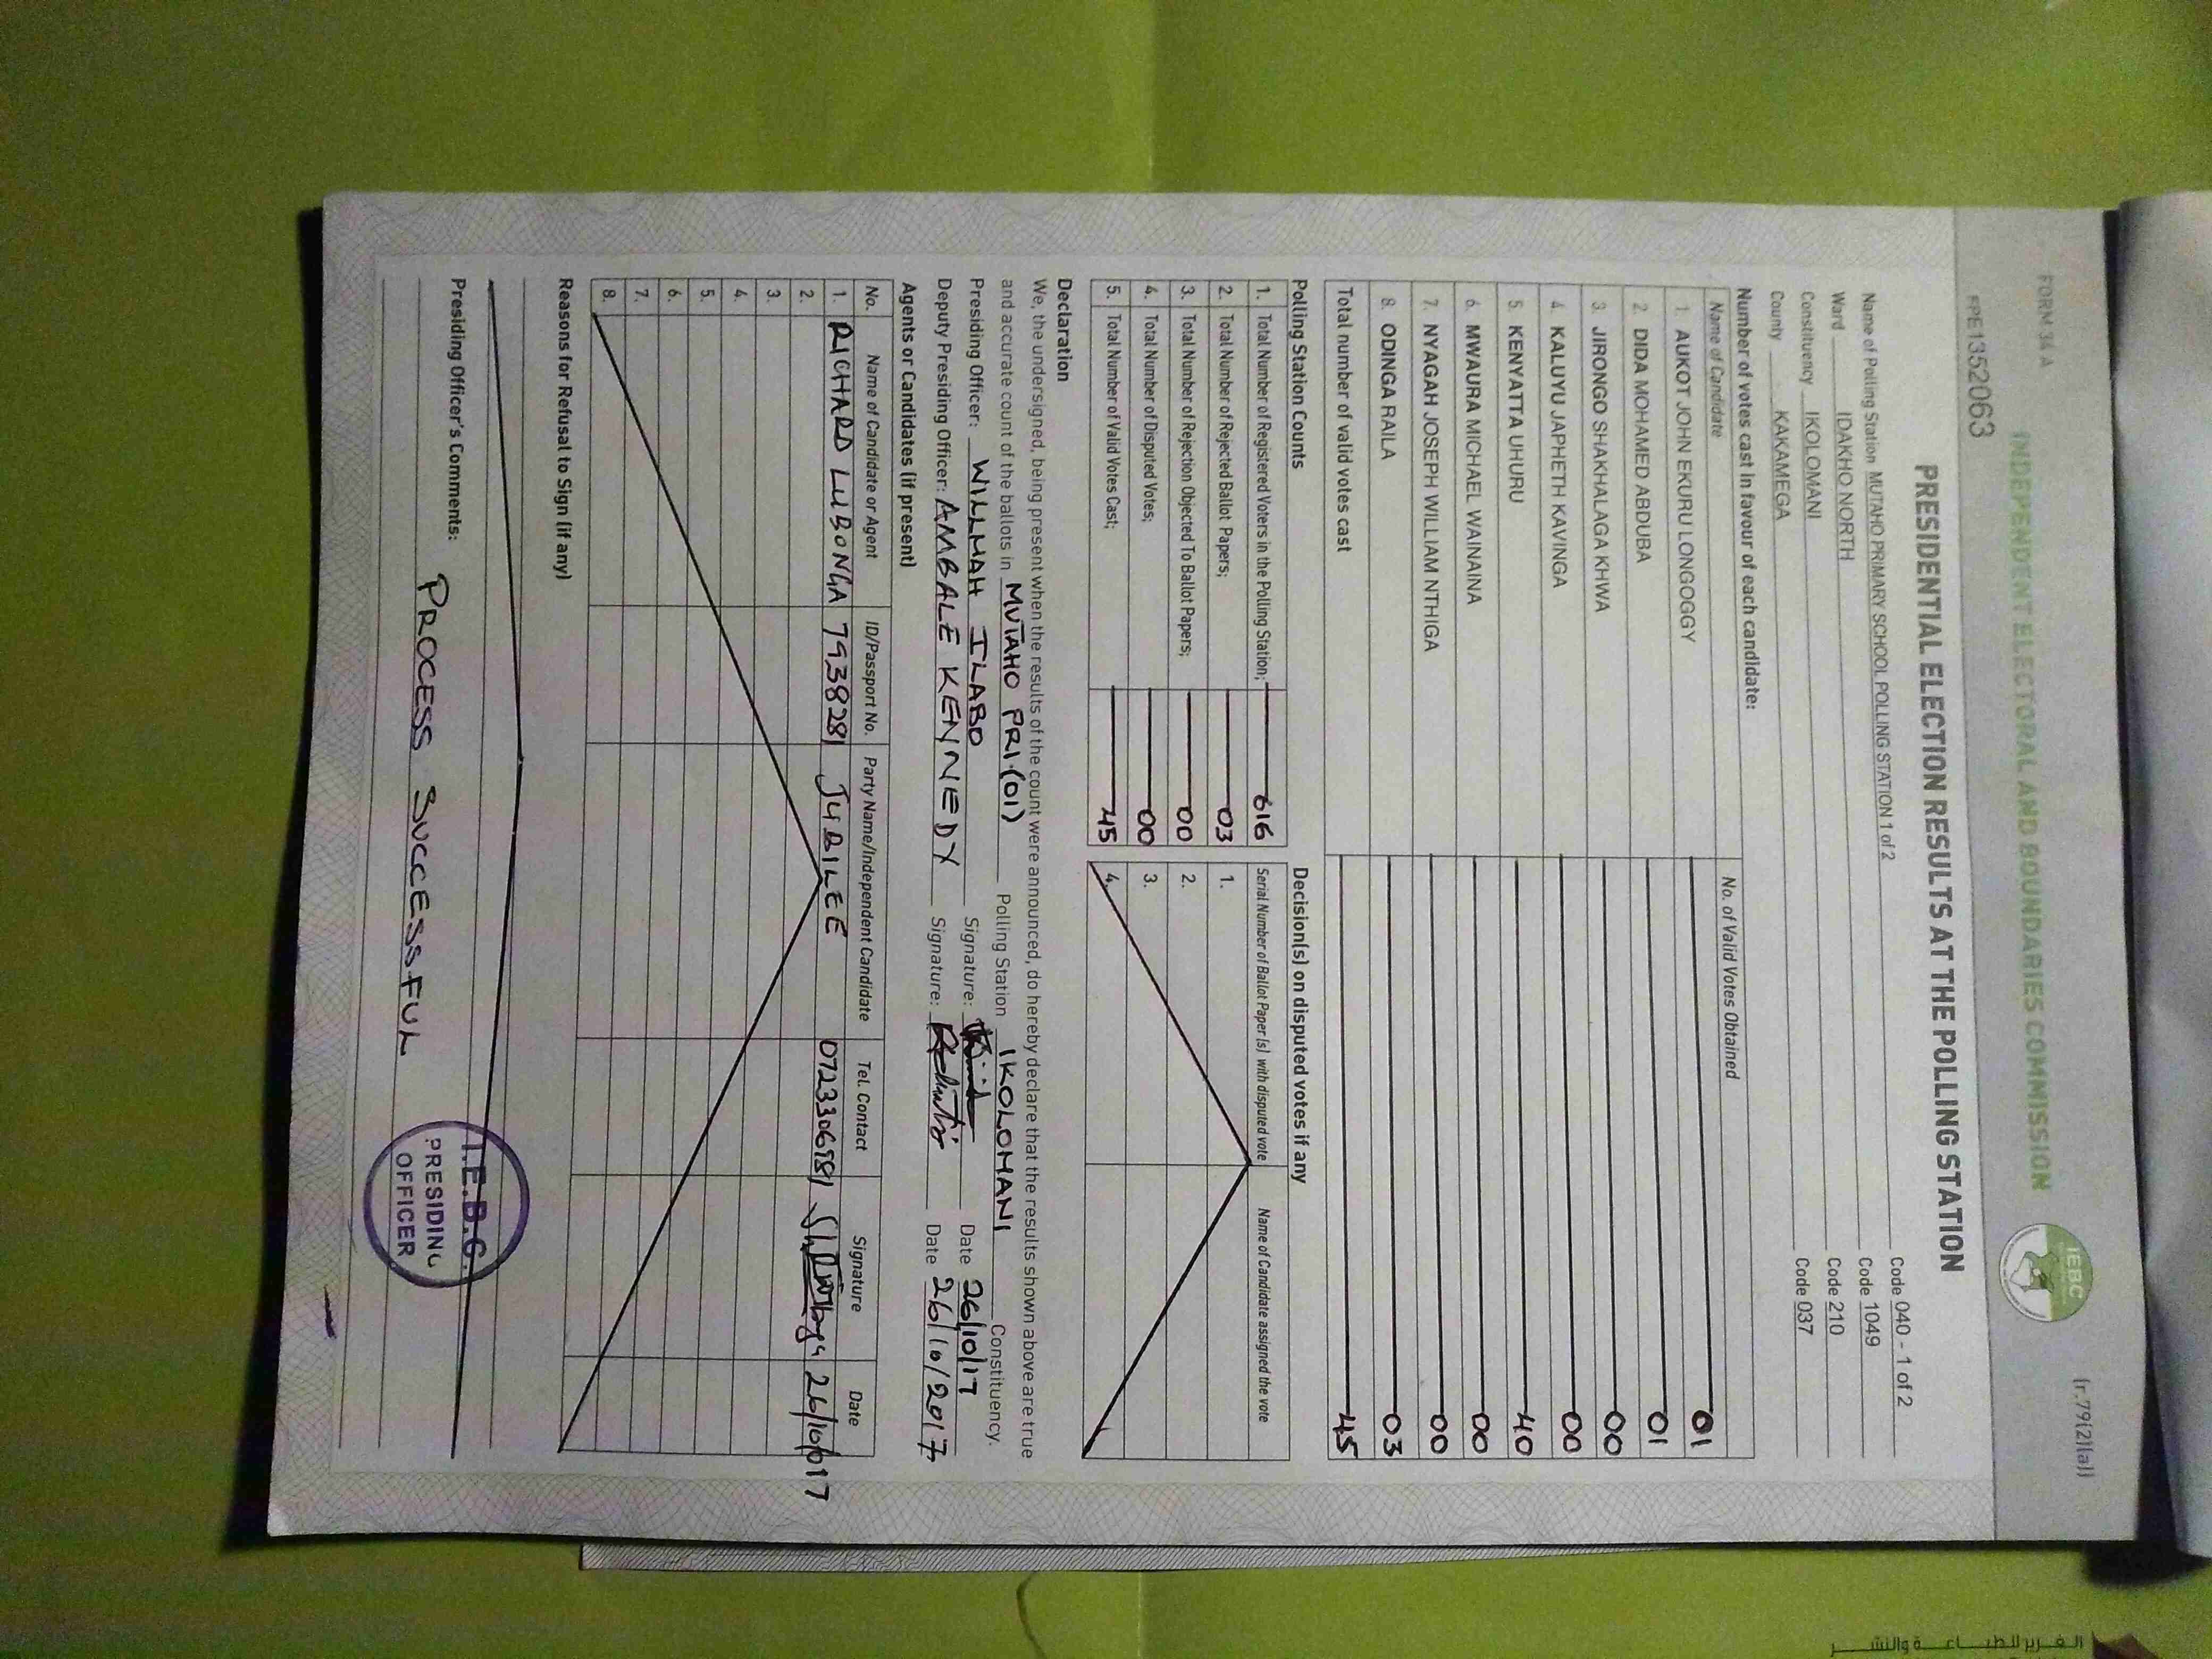 FORM 34 A
(r.79(2)(a))
INDEPENDENT ELECTORAL AND BOUNDARIES COMMISSION
IEBC
FPE1352063
PRESIDENTIAL ELECTION RESULTS AT THE POLLING STATION
Name of Polling Station MUTAHO PRIMARY SCHOOL POLLING STATION 1 of 2 Code 040 - 1 of 2
Ward IDAKHO NORTH Code 1049
Constituency IKOLOMANI Code 210
County KAKAMEGA Code 037
Number of votes cast in favour of each candidate:
Name of Candidate No. of Valid Votes Obtained
1. AUKOT JOHN EKURU LONGOGGY 01
2. DIDA MOHAMED ABDUBA 01
3. JIRONGO SHAKHALAGA KHWA 00
4. KALUYU JAPHETH KAVINGA 00
5. KENYATTA UHURU 40
6. MWAURA MICHAEL WAINAINA 00
7. NYAGAH JOSEPH WILLIAM NTHIGA 00
8. ODINGA RAILA 03
Total number of valid votes cast 45
Polling Station Counts
1. Total Number of Registered Voters in the Polling Station; 616
2. Total Number of Rejected Ballot Papers; 03
3. Total Number of Rejection Objected To Ballot Papers; 00
4. Total Number of Disputed Votes; 00
5. Total Number of Valid Votes Cast; 45
Decision(s) on disputed votes if any
Serial Number of Ballot Paper (s) with disputed vote Name of Candidate assigned the vote
1.
2.
3.
4.
Declaration
We, the undersigned, being present when the results of the count were announced, do hereby declare that the results shown above are true
and accurate count of the ballots in MUTAHO PRI.(01) Polling Station IKOLOMANI Constituency.
Presiding Officer: WILLMAH ILABO Signature: Date 26/10/17
Deputy Presiding Officer: AMBALE KENNEDY Signature: Date 26/10/2017
Agents or Candidates (if present)
No. Name of Candidate or Agent ID/Passport No. Party Name/Independent Candidate Tel. Contact Signature Date
1. RICHARD LUBONGA 7938281 JUBILEE 0723306981
2.
3.
4.
5.
6.
7.
8.
Reasons for Refusal to Sign (if any)
Presiding Officer's Comments:
PROCESS SUCCESSFUL
I.E.B.C.
PRESIDING
OFFICER